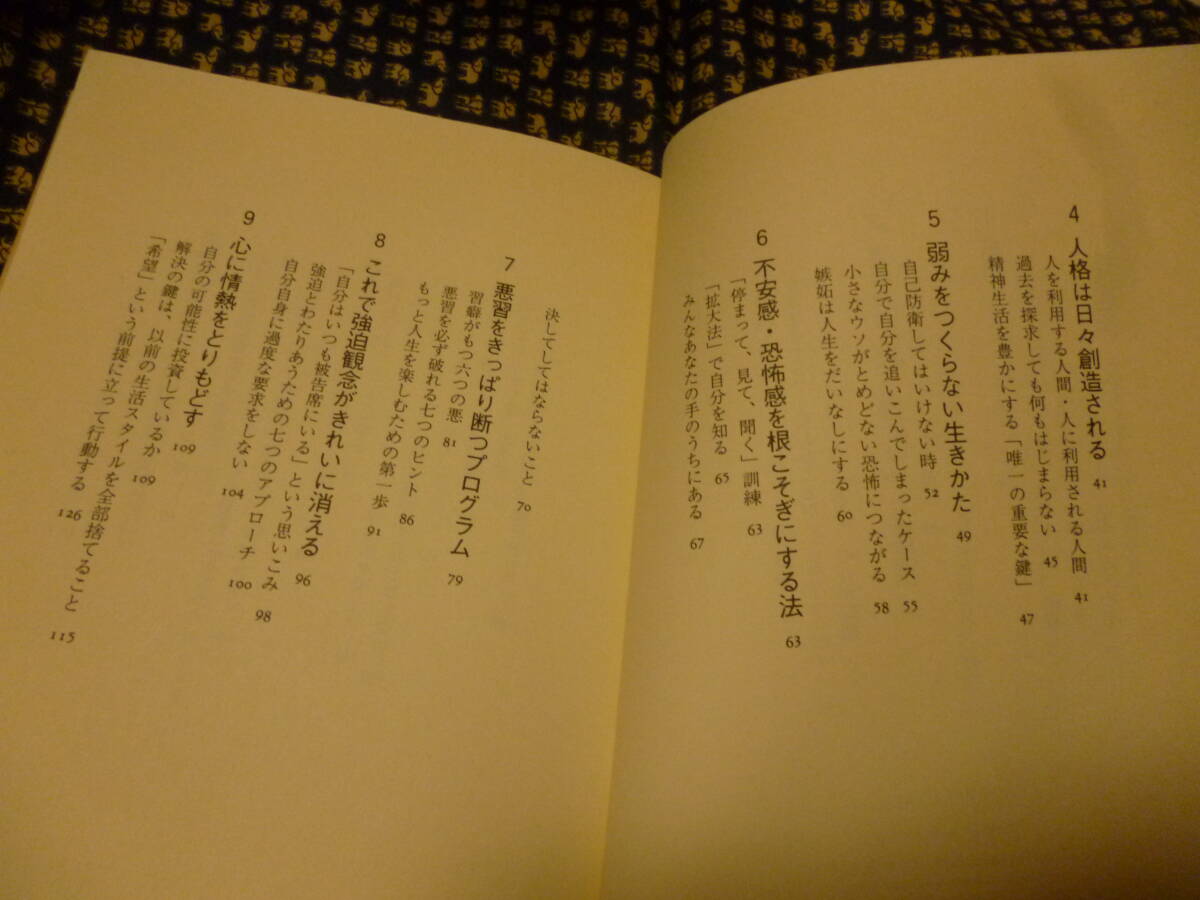 4 人格は日々創造される 41
人を利用する人間・人に利用される人間 41
過去を探求しても何もはじまらない 45
精神生活を豊かにする「唯一の重要な鍵」 47
5 弱みをつくらない生きかた 49
自己防衛してはいけない時 52
自分で自分を追いこんでしまったケース 55
小さなウソがとめどない恐怖につながる 58
嫉妬は人生をだいなしにする 60
6 不安感・恐怖感を根こそぎにする法 63
「停まって、見て、聞く」訓練 63
「拡大法」で自分を知る 65
みんなあなたの手のうちにある 67
決してしてはならないこと 70
7 悪習をきっぱり断つプログラム 79
習癖がもつ六つの悪 81
悪習を必ず破れる七つのヒント 86
もっと人生を楽しむための第一歩 91
8 これで強迫観念がきれいに消える 96
「自分はいつも被告席にいる」という思いこみ 98
強迫とわたりあうための七つのアプローチ 100
自分自身に過度な要求をしない 104
9 心に情熱をとりもどす 109
自分の可能性に投資しているか 109
解決の鍵は、以前の生活スタイルを全部捨てること 115
「希望」という前提に立って行動する 126